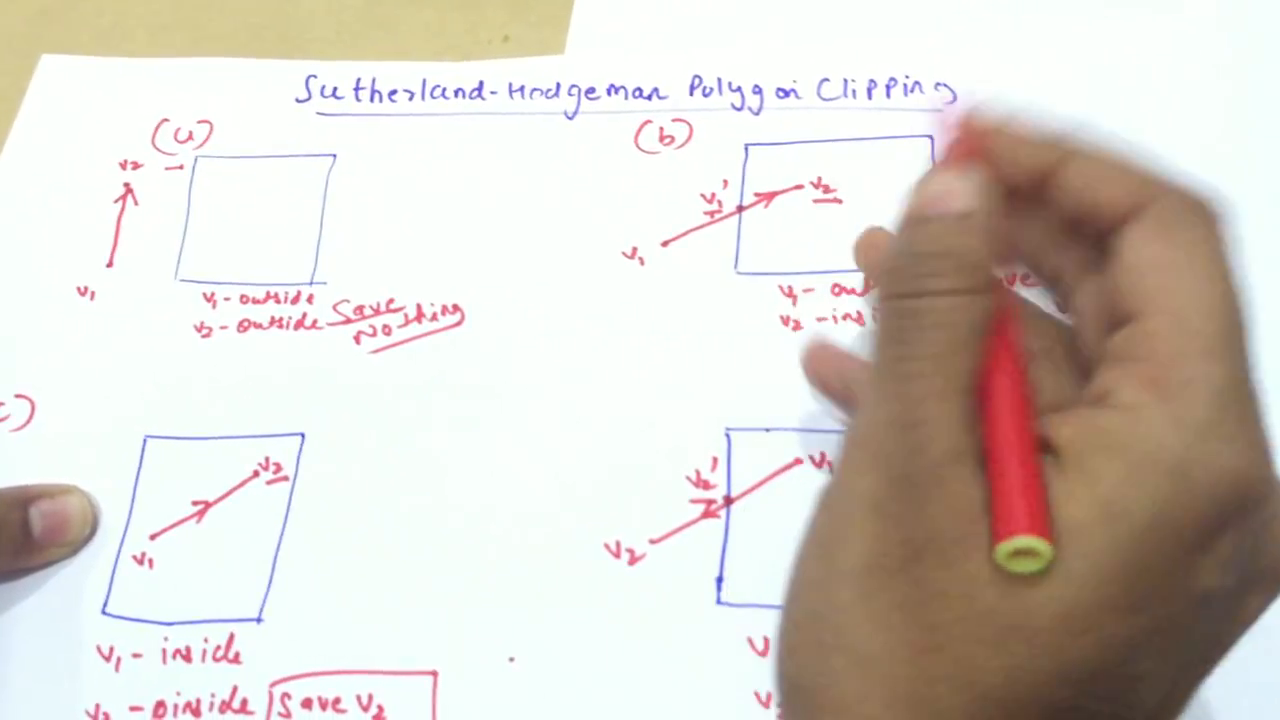 Sutherland-Hodgeman Polygon Clipping
(a)
v2
v1
v1 - outside
v2 - outside Save Nothing
(b)
v1'
v2
v1
v1 - ou
v2 - insi
c)
v2
v1
v1 - inside
v2 - inside Save v2
v2'
v1
v2
v
v